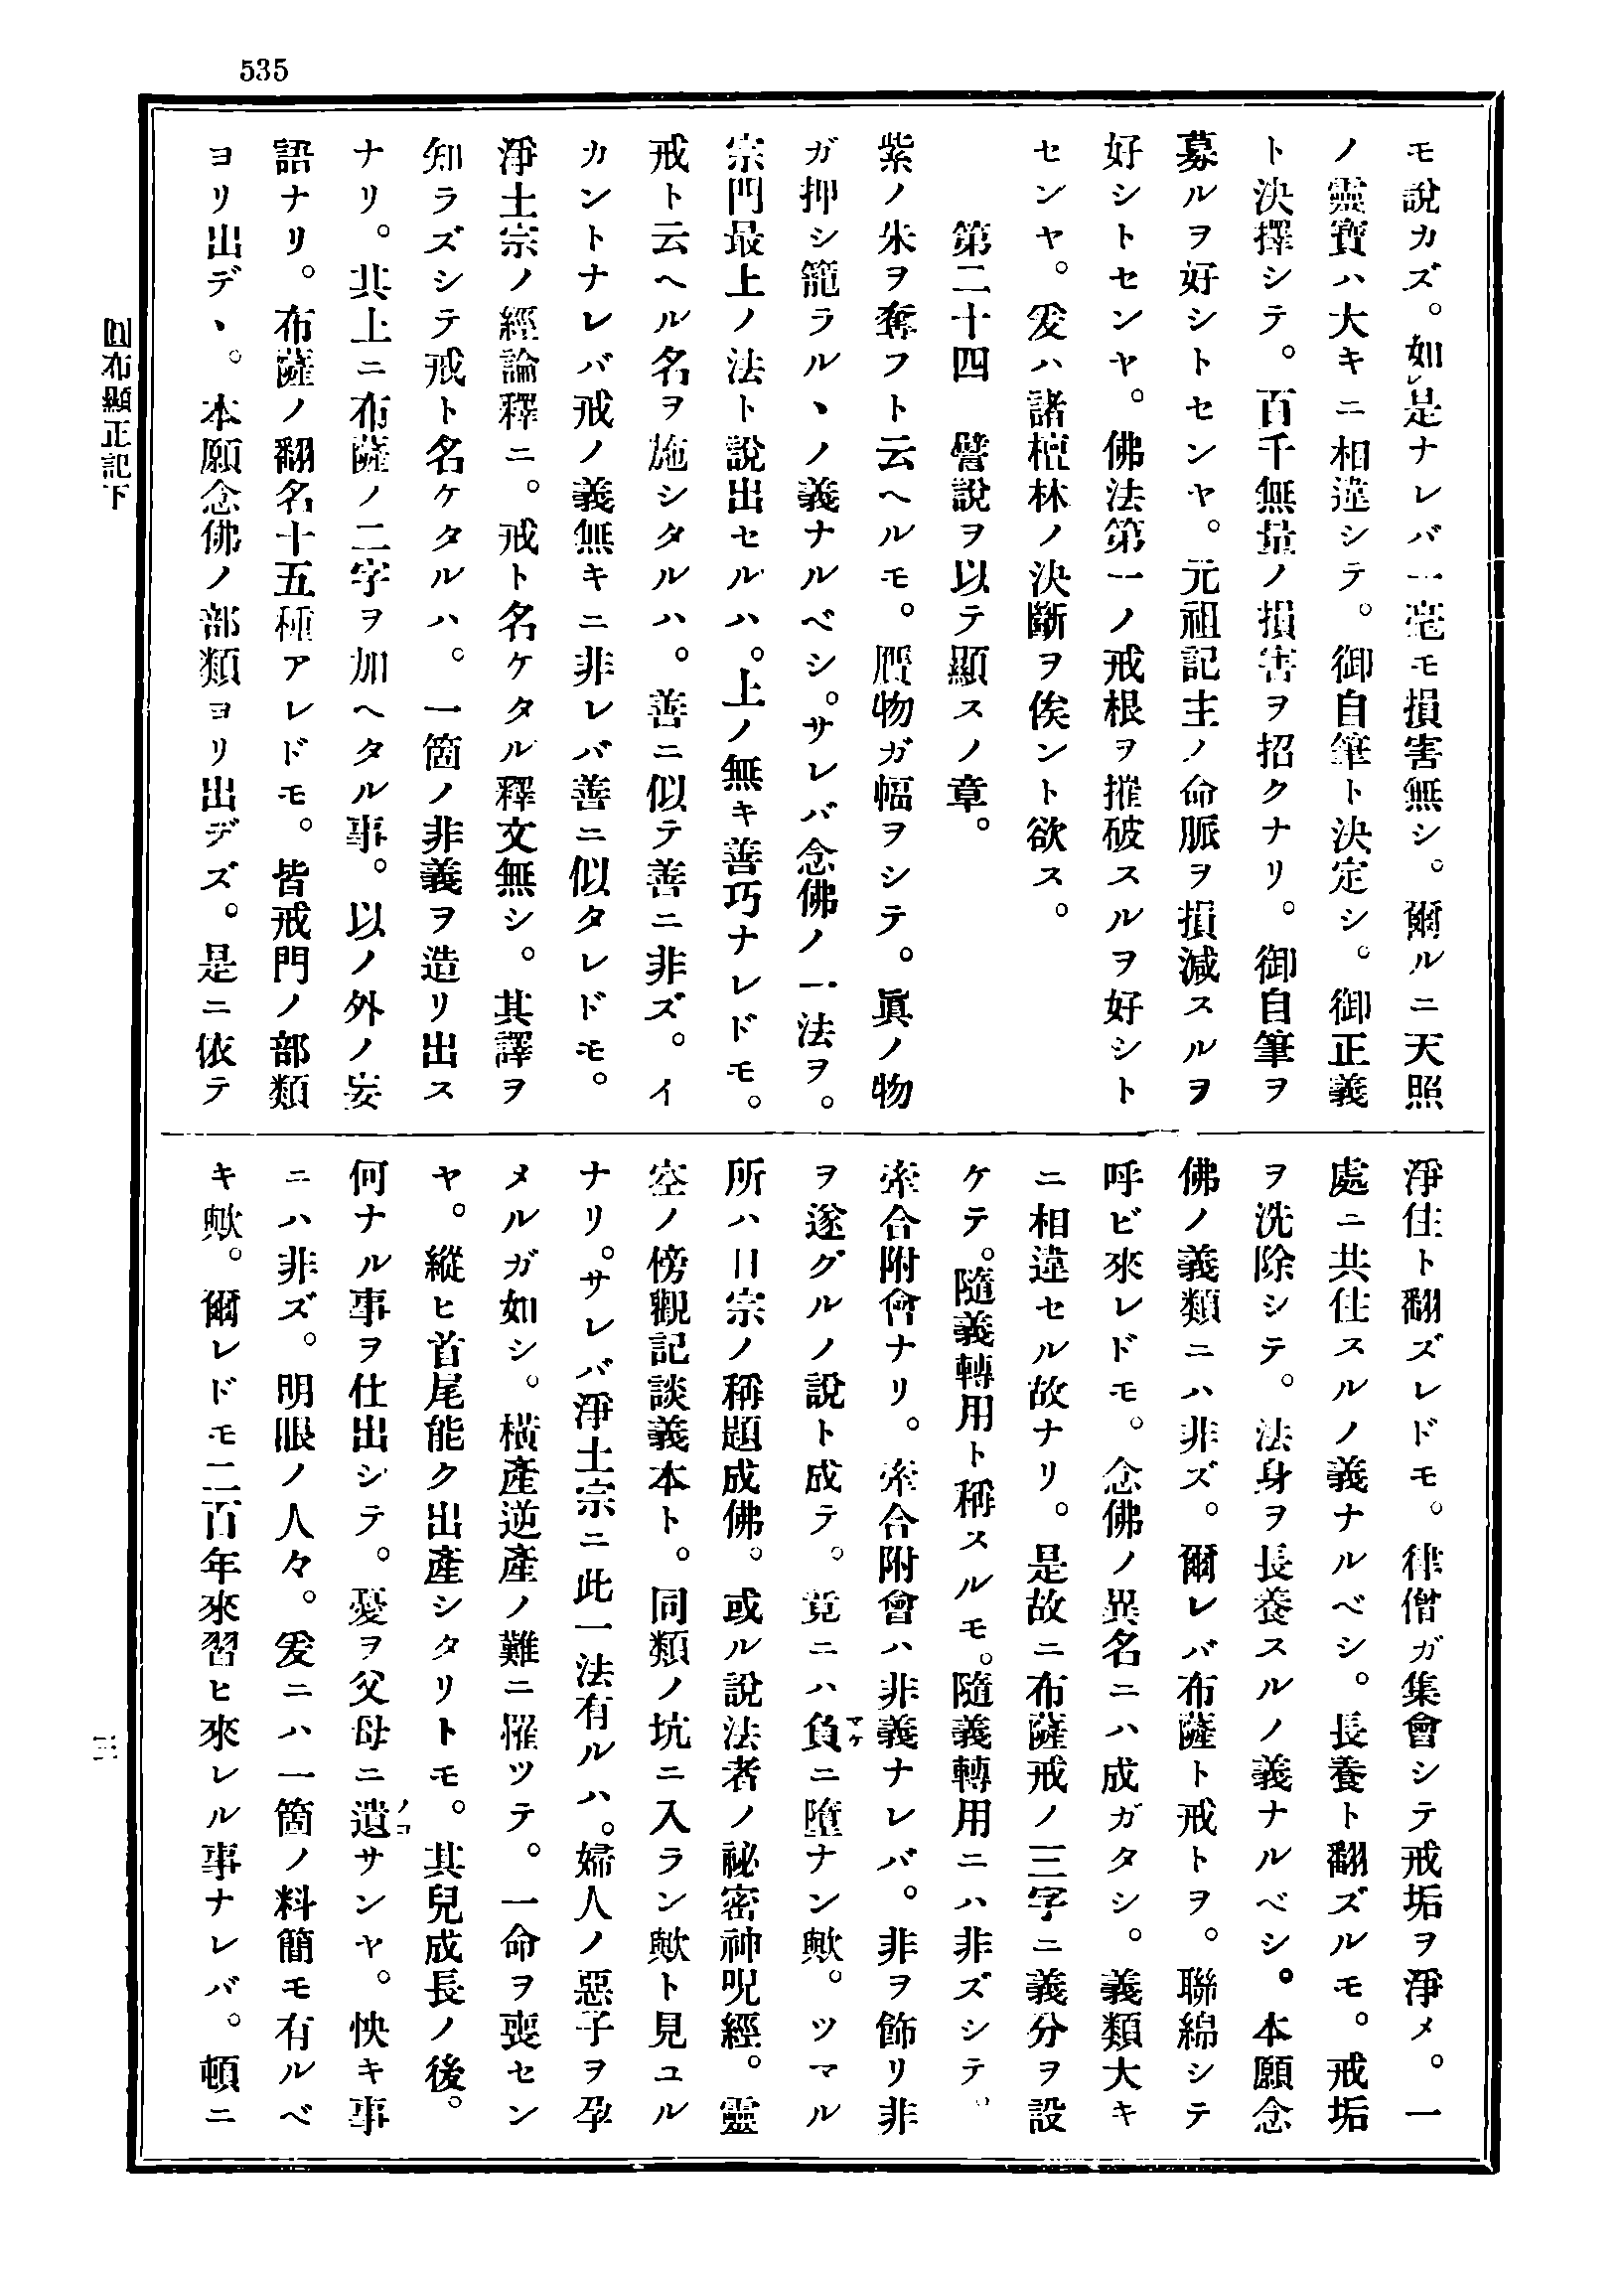 535
モ說カズ。如レ是ナレバ一毫モ損害無シ。爾ルニ天照
ノ靈寶ハ大キニ相違シテ。御自筆ト決定シ。御正義
ト決擇シテ。百千無量ノ損害ヲ招クナリ。御自筆ヲ
募ルヲ好シトセンヤ。元祖記主ノ命脈ヲ損減スルヲ
好シトセンヤ。佛法第一ノ戒根ヲ摧破スルヲ好シト
センヤ。爰ハ諸檀林ノ決斷ヲ俟ント欲ス。
第二十四 譬說ヲ以テ顯スノ章。
紫ノ朱ヲ奪フト云ヘルモ。贋物ガ幅ヲシテ。眞ノ物
ガ押シ籠ラルヽノ義ナルベシ。サレバ念佛ノ一法ヲ。
宗門最上ノ法ト說出セルハ。上ノ無キ善巧ナレドモ。
戒ト云ヘル名ヲ施シタルハ。善ニ似テ善ニ非ズ。イ
カントナレバ戒ノ義無キニ非レバ善ニ似タレドモ。
淨土宗ノ經論釋ニ。戒ト名ケタル釋文無シ。其譯ヲ
知ラズシテ戒ト名ケタルハ。一箇ノ非義ヲ造リ出ス
ナリ。其上ニ布薩ノ二字ヲ加ヘタル事。以ノ外ノ妄
語ナリ。布薩ノ翻名十五種アレドモ。皆戒門ノ部類
ヨリ出デヽ。本願念佛ノ部類ヨリ出デズ。是ニ依テ
淨住ト翻ズレドモ。律僧ガ集會シテ戒垢ヲ淨メ。一
處ニ共住スルノ義ナルベシ。長養ト翻ズルモ。戒垢
ヲ洗除シテ。法身ヲ長養スルノ義ナルベシ。本願念
佛ノ義類ニハ非ズ。爾レバ布薩ト戒トヲ。聯綿シテ
呼ビ來レドモ。念佛ノ異名ニハ成ガタシ。義類大キ
ニ相違セル故ナリ。是故ニ布薩戒ノ三字ニ義分ヲ設
ケテ。隨義轉用ト稱スルモ。隨義轉用ニハ非ズシテ。
牽合附會ナリ。牽合附會ハ非義ナレバ。非ヲ飾リ非
ヲ遂グルノ說ト成テ。竟ニハ負マケニ墮ナン歟。ツマル
所ハ日宗ノ稱題成佛。或ル說法者ノ祕密神呪經。靈
空ノ傍觀記談義本ト。同類ノ坑ニ入ラン歟ト見ユル
ナリ。サレバ淨土宗ニ此一法有ルハ。婦人ノ惡子ヲ孕
メルガ如シ。橫產逆產ノ難ニ罹ツテ。一命ヲ喪セン
ヤ。縱ヒ首尾能ク出產シタリトモ。其兒成長ノ後。
何ナル事ヲ仕出シテ。憂ヲ父母ニ遺ノコサンヤ。怏キ事
ニハ非ズ。明眼ノ人々。爰ニハ一箇ノ料簡モ有ルベ
キ歟。爾レドモ二百年來習ヒ來レル事ナレバ。頓ニ
圓布顯正記下